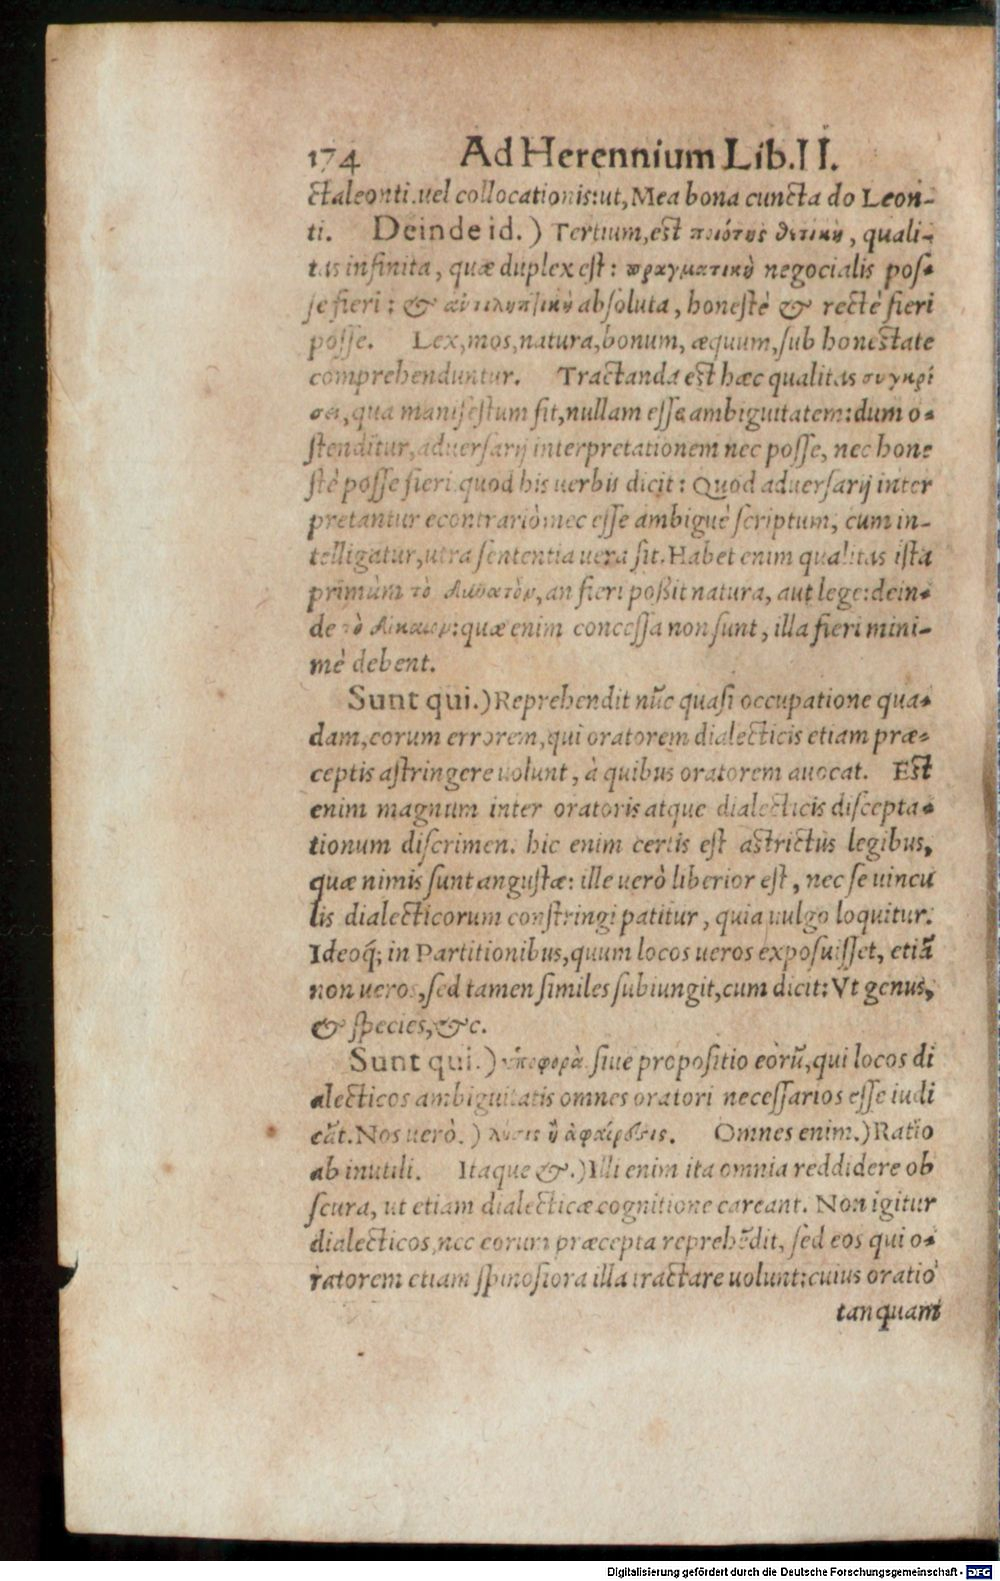 174 Ad Herennium Lib.II.
ctaleonti.uel collocationis:ut, Mea bona cuncta do Leon-
ti. Deinde id.) Tertium,est ποιότης θετικὴ, quali-
tas infinita, quæ duplex est: πραγματικὴ negocialis pos-
se fieri: & ἀντιληπτικὴ absoluta, honestè & rectè fieri
posse. Lex,mos,natura,bonum, æquum,sub honestate
comprehenduntur. Tractanda est hæc qualitas συγκρί
σει,qua manifestum fit,nullam esse ambiguitatem:dum o-
stenditur,aduersarij interpretationem nec posse, nec hone
stè posse fieri quod his uerbis dicit: Quod aduersarij inter
pretantur econtrariò:nec esse ambiguè scriptum, cum in-
telligatur,utra sententia uera sit.Habet enim qualitas ista
primùm τὸ δυνατὸν,an fieri poßit natura, aut lege:dein-
de τὸ δίκαιον:quæ enim concessa non sunt, illa fieri mini-
mè debent.
Sunt qui.)Reprehendit nūc quasi occupatione qua-
dam,eorum errorem,qui oratorem dialecticis etiam præ-
ceptis astringere uolunt, à quibus oratorem auocat. Est
enim magnum inter oratoris atque dialecticis discepta-
tionum discrimen. hic enim certis est astrictus legibus,
quæ nimis sunt angustæ: ille uerò liberior est, nec se uincu
lis dialecticorum constringi patitur, quia uulgo loquitur.
Ideoq́; in Partitionibus,quum locos ueros exposuisset, etiā
non ueros,sed tamen similes subiungit,cum dicit: Vt genus,
& species,&c.
Sunt qui.) ὑποφορὰ siue propositio eorū,qui locos di
alecticos ambiguitatis omnes oratori necessarios esse iudi
cāt.Nos uerò.) λύσις ἢ ἀφαίρεσις. Omnes enim.)Ratio
ab inutili. Itaque &.)Illi enim ita omnia reddidere ob
scura, ut etiam dialecticæ cognitione careant. Non igitur
dialecticos,nec eorum præcepta reprehēdit, sed eos qui o-
ratorem etiam spinosiora illa tractare uolunt:cuius oratio
tanquam
Digitalisierung gefördert durch die Deutsche Forschungsgemeinschaft - DFG